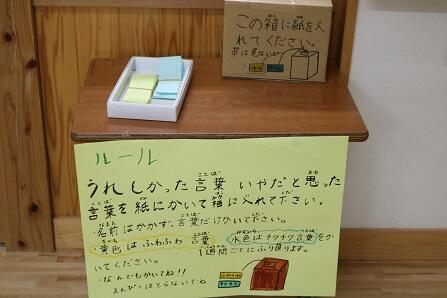 この箱に紙を入
れてください。
ルール
うれしかった言葉 いやだと思った
言葉を紙にかいて箱に入れて下さい。
・名前はかかず、言葉だけかいてください。
・黄色はふわふわ言葉 水色はチクチク言葉をか
いてください。 1週間ごとにふり回ります。
・なんでもかいてね!!
えんぴつはとらないでね